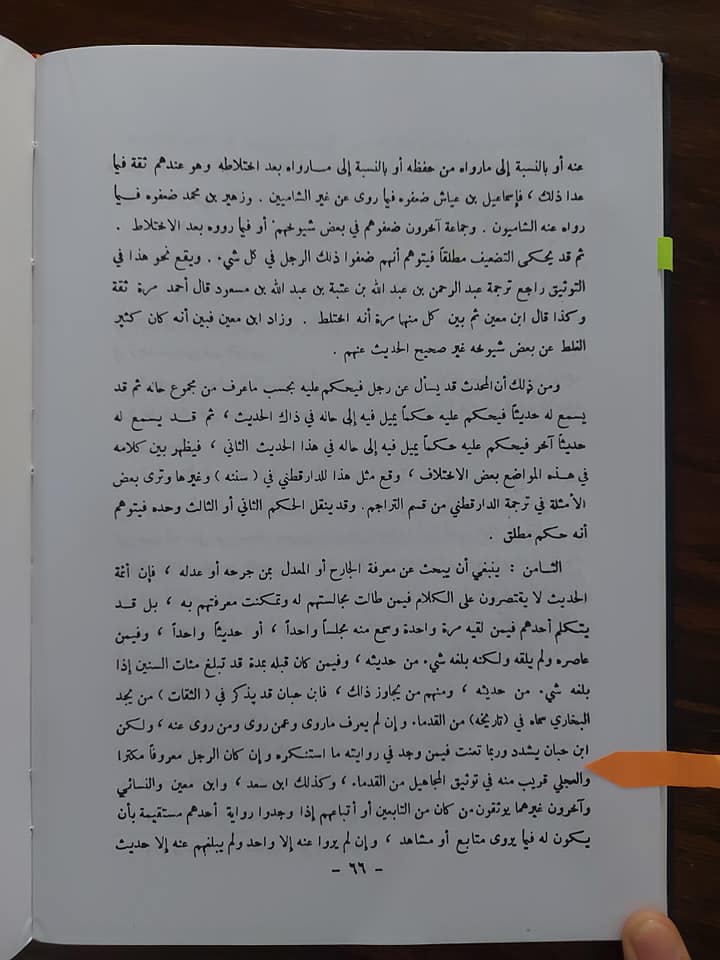 عنه أو بالنسبة إلى مارواه من حفظه أو بالنسبة إلى مـارواه بعد اختلاطه وهو عندهم ثقة فيما
عدا ذلك ، فإسماعيل بن عياش ضعفوه فيما روى عن غير الشاميين . وزهير بن محمد ضعفوه فـيما
رواه عنه الشاميون . وجماعة آخرون ضعفوهم في بعض شيوخهم أو فيما رووه بعد الاختلاط .
ثم قد يحكى التضعيف مطلقاً فيتوهم أنهم ضعفوا ذلك الرجل في كل شيء . ويقع نحو هذا في
التوثيق راجع ترجمة عبد الرحمن بن عبد الله بن عتبة بن عبد الله بن مسعود قال أحمد مرة ثقة
وكذا قال ابن معين ثم بين كل منهما مرة أنه اختلط . وزاد ابن معين فبين أنه كان كثير
الغلط عن بعض شيوخه غير صحيح الحديث عنهم .
ومن ذلك أن المحدث قد يسأل عن رجل فيحكم عليه بحسب ماعرف من مجموع حاله ثم قد
يسمع له حديثاً فيحكم عليه حكماً يميل فيه إلى حاله في ذاك الحديث ، ثم قـد يسمع له
حديثاً آخر فيحكم عليه حكماً يميل فيه إلى حاله في هذا الحديث الثاني ، فيظهر بين كلامه
في هـذه المواضع بعض الاختلاف ، وقع مثل هذا للدارقطني في ( سننه ) وغيرها وترى بعض
الأمثلة في ترجمة الدارقطني من قسم التراجم . وقد ينقل الحكم الثاني أو الثالث وحده فيتوهم
أنه حكم مطلق .
الثـامن : ينبغي أن يبحث عن معرفة الجارح أو المعدل بمن جرحه أو عدله ، فإن أئمة
الحديث لا يقتصرون على الكلام فيمن طالت مجالستهم له وتمكنت معرفتهم به ، بل قـد
يتكلم أحدهم فيمن لقيه مرة واحدة وسمع منه مجلساً واحداً ، أو حديثاً واحداً ، وفيمن
عاصره ولم يلقه ولكنه بلغه شيء من حديثه ، وفيمن كان قبله بمدة قد تبلغ مئات السنين إذا
بلغه شيء من حديثه ، ومنهم من يجاوز ذلك ، فابن حبان قد يذكر في ( الثقات ) من يجد
البخاري سماه في (تاريخه) من القدماء وإن لم يعرف ماروى وعمن روى ومن روى عنه ، ولكن
ابن حبان يشدد وربما تعنت فيمن وجد في روايته ما استنكره وإن كان الرجل معروفاً مكثرا
والعجلي قريب منه في توثيق المجاهيل من القدماء ، وكذلك ابن سعد ، وابن معين والنسائي
وآخرون غيرهما يوثقون من كان من التابعين أو أتباعهم إذا وجدوا رواية أحدهم مستقيمة بأن
يكون له فيما يروى متابع أو مشاهد ، وإن لم يروا عنه إلا واحد ولم يبلغهم عنه إلا حديث
- ٦٦ -